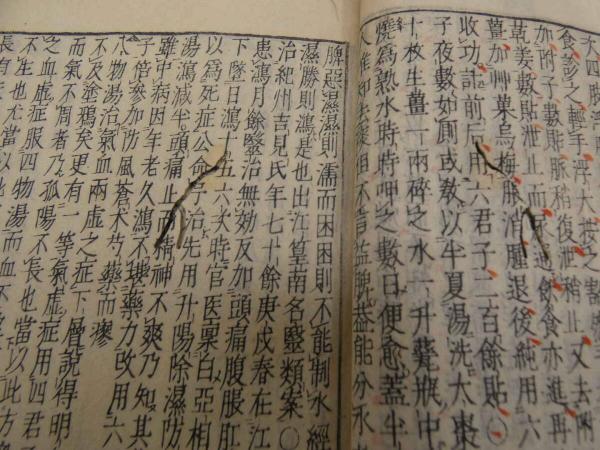 食彭之輕手浮大按之
加附子數貼脈稍復泄稍止又去附
乾姜數貼泄止而尿通餘食亦進再
薑加艸菓烏梅脹消腫退後純用六
收功詰前后用六君子二百餘貼〇
子夜數如厠或教以半夏湯洗太棗
十枚生薑一兩碎之水一升甆瓶中
燒爲熟水時時呷之數日便愈蓋半
益脾益能分水
脾惡濕濕則濡而困困則不能制水經
濕勝則瀉是也出江篁南名醫類案〇
治紀州吉見氏年七十餘庚戌春在江
患瀉月餘醫治無効反加頭痛腹脹肛
下墜日瀉十五六次時官医稟白亞相
以爲死症公命予治先用升陽除濕防
湯瀉減半頭痛止而精神不爽乃知其
雖中病因年老久瀉不勝藥力改用六
子倍參加防風蒼朮芍藥而瘳
八物湯治氣血兩虛之症下層說得明
不及塗鴉矣更有一等氣虛症用四君
而氣不周者乃孤陽不長也當以此方
之血虛症服四物湯而血不
不生也尤當以此方
長有